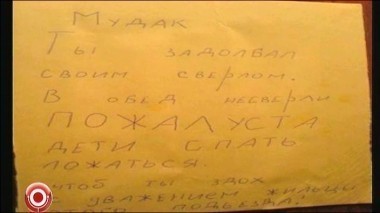 Мудак
Ты задолбал
своим сверлом.
В обед несверли
ПОЖАЛУСТА
дети спать
ложаться.
чтоб ты здох
с уважением жильцы
этого подьезда!